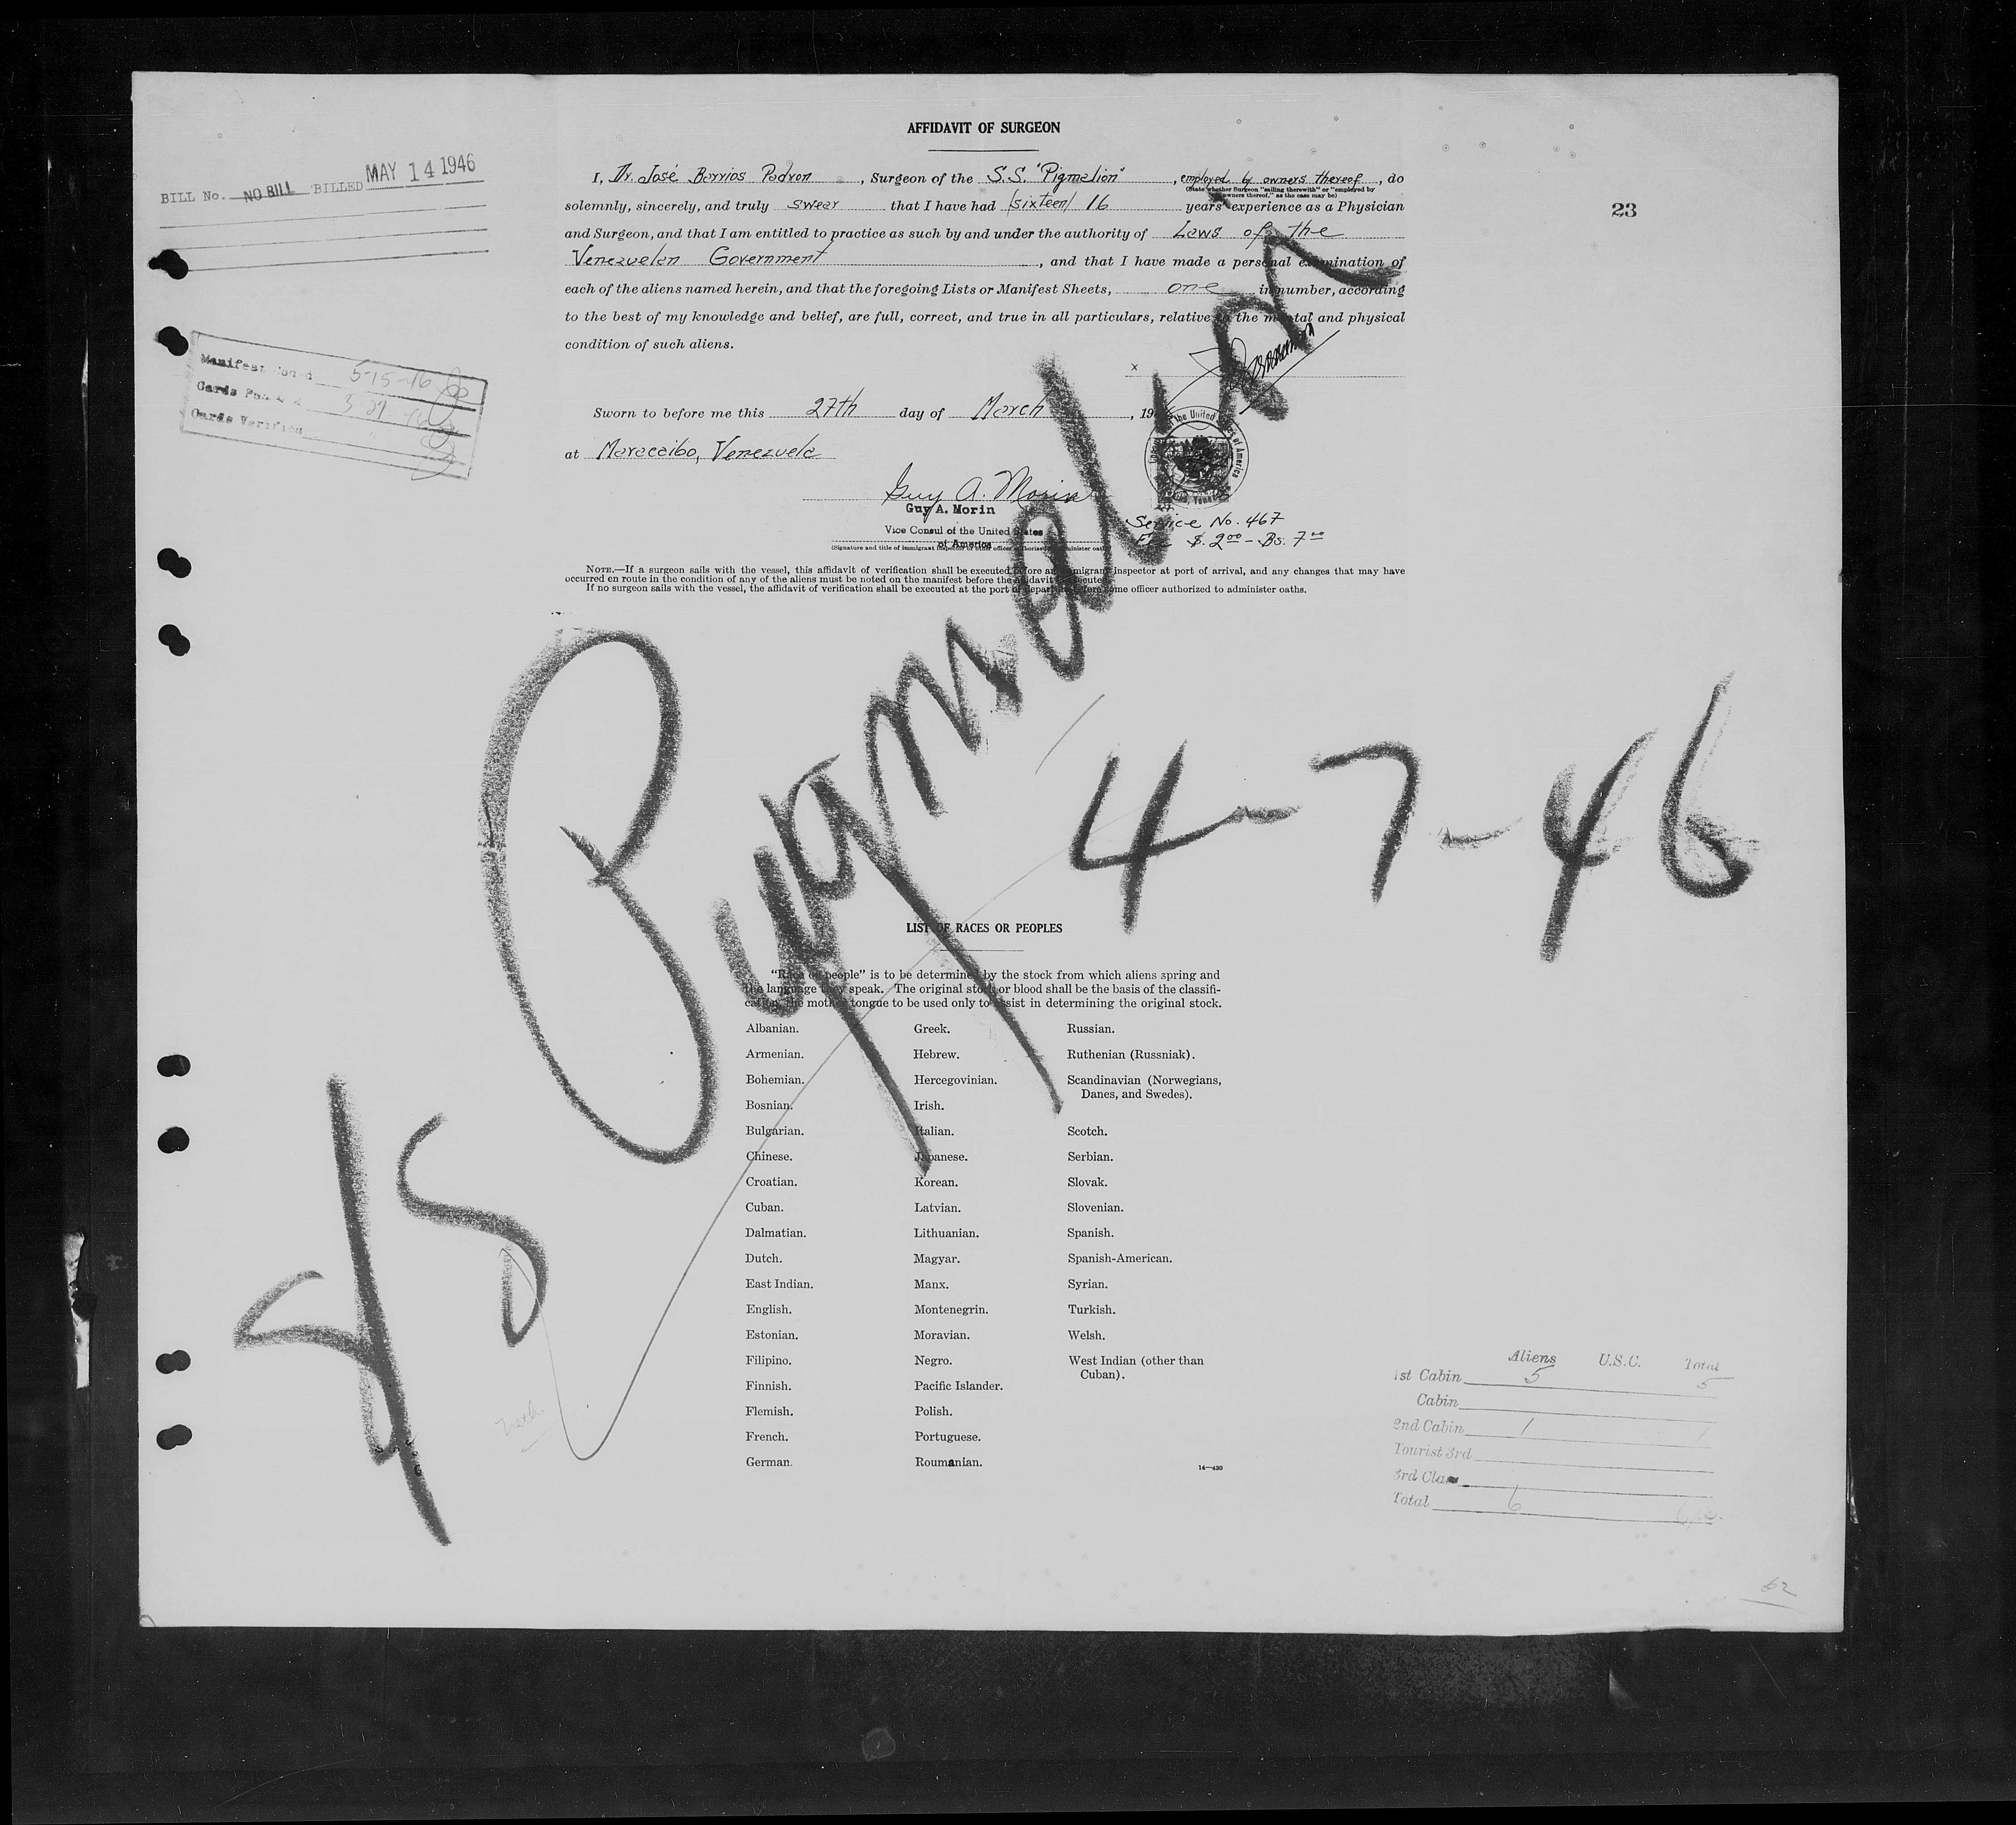 AFFIDAVIT OF SURGEON
BILL No. NO BILL BILLED MAY 14 1946
23
I, Dr. José Berrios Padron, Surgeon of the S.S. "Pigmalion", employed by owners thereof, do
(State whether Surgeon "sailing therewith" or "employed by owners thereof," as the case may be)
solemnly, sincerely, and truly swear that I have had /sixteen/ 16 years' experience as a Physician
and Surgeon, and that I am entitled to practice as such by and under the authority of Laws of the
Venezuelan Government, and that I have made a personal examination of
each of the aliens named herein, and that the foregoing Lists or Manifest Sheets, one in number, according
to the best of my knowledge and belief, are full, correct, and true in all particulars, relative to the mental and physical
condition of such aliens.
x
Manifest 5-15-46
Cards
Cards Verified
Sworn to before me this 27th day of March, 19
at Maracaibo, Venezuela
Guy A. Morin
Guy A. Morin
Vice Consul of the United States
of America
(Signature and title of immigrant inspector or other officer authorized to administer oaths)
Service No. 467
Fee $. 2.00 - Bs. 7.00
NOTE.—If a surgeon sails with the vessel, this affidavit of verification shall be executed before an immigrant inspector at port of arrival, and any changes that may have
occurred en route in the condition of any of the aliens must be noted on the manifest before the affidavit is executed.
If no surgeon sails with the vessel, the affidavit of verification shall be executed at the port of departure before some officer authorized to administer oaths.
S/S Pygmalion
4-7-46
LIST OF RACES OR PEOPLES
"Race or people" is to be determined by the stock from which aliens spring and
the language they speak. The original stock or blood shall be the basis of the classifi-
cation, the mother tongue to be used only to assist in determining the original stock.
Albanian.
Armenian.
Bohemian.
Bosnian.
Bulgarian.
Chinese.
Croatian.
Cuban.
Dalmatian.
Dutch.
East Indian.
English.
Estonian.
Filipino.
Finnish.
Flemish.
French.
German.
Greek.
Hebrew.
Hercegovinian.
Irish.
Italian.
Japanese.
Korean.
Latvian.
Lithuanian.
Magyar.
Manx.
Montenegrin.
Moravian.
Negro.
Pacific Islander.
Polish.
Portuguese.
Roumanian.
Russian.
Ruthenian (Russniak).
Scandinavian (Norwegians,
Danes, and Swedes).
Scotch.
Serbian.
Slovak.
Slovenian.
Spanish.
Spanish-American.
Syrian.
Turkish.
Welsh.
West Indian (other than
Cuban).
14—430
Aliens U.S.C. Total
1st Cabin 5 5
Cabin
2nd Cabin 1 1
Tourist 3rd
3rd Class
Total 6
62